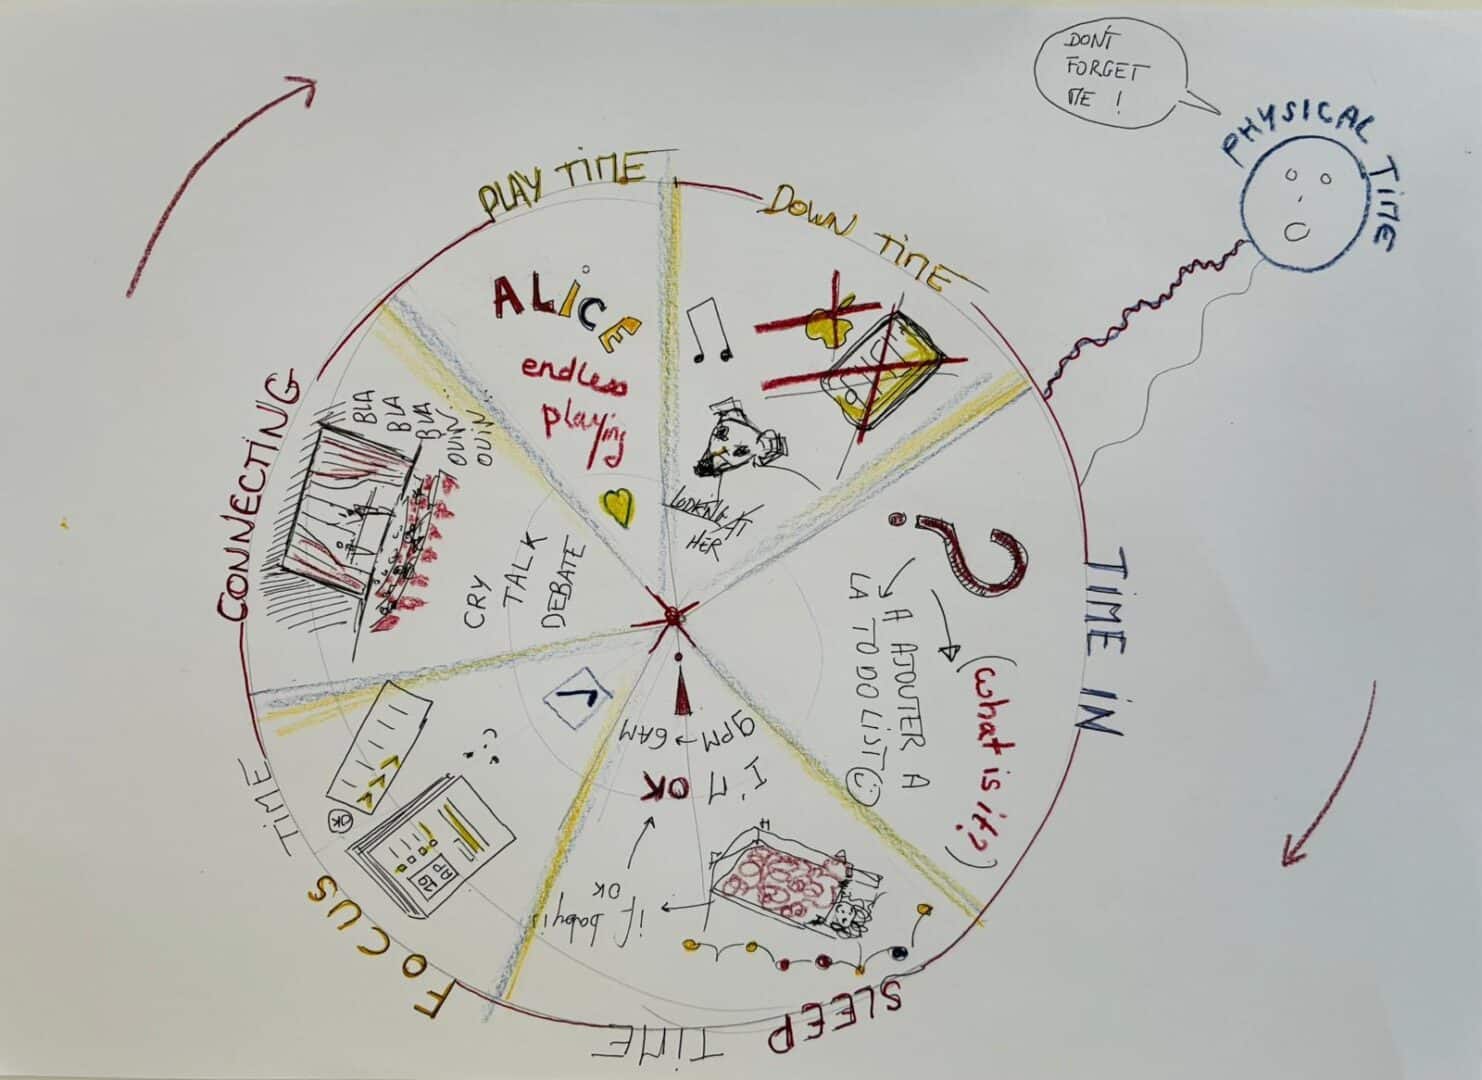 DON'T
FORGET
ME !
PHYSICAL TIME
PLAY TIME
ALICE
endless
playing
DOWN TIME
LOOKING AT
HER
TIME IN
?
A AJOUTER A
LA TO DO LIST
(what is it?)
SLEEP TIME
9PM → 6AM
I'M OK
if baby is
OK
FOCUS TIME
OK
CONNECTING
BLA
BLA
BLA
OUIN
OUIN
CRY
TALK
DEBATE